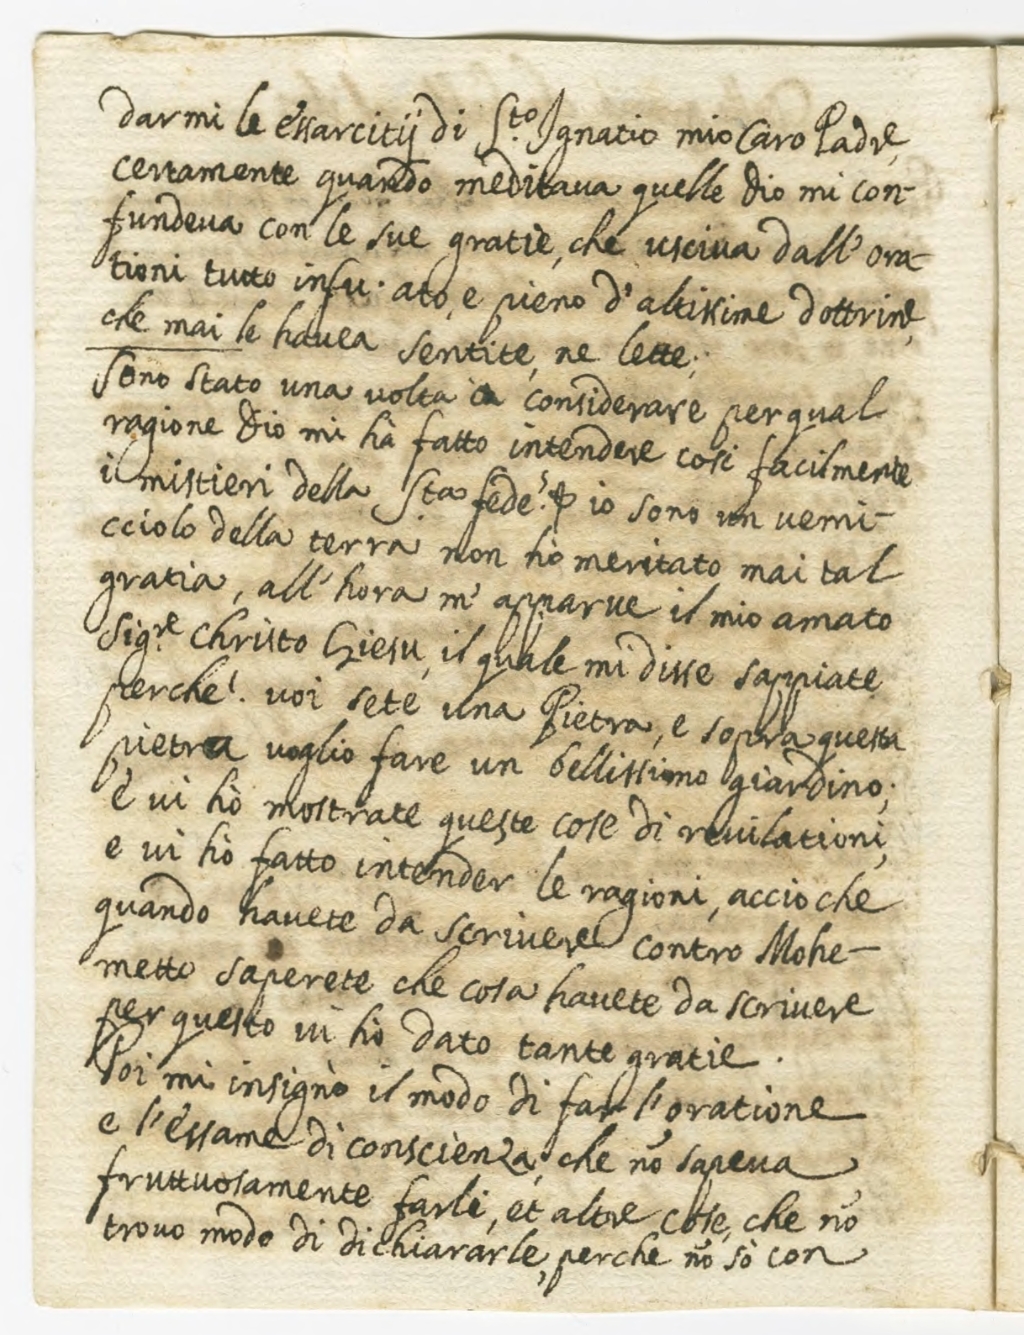 darmi le essarcitij di S.to Ignatio mio Caro Padre,
certamente quando meditava quelle Dio mi con-
fundeua con le sue gratie, che usciua dall' ora-
tioni tutto infu·ato, e pieno d'altissime dottrine,
che mai le hauea sentite, ne lette;
Sono stato una volta a considerare per qual
ragione Dio mi hà fatto intendere cosi facilmente
i mistieri della Sta fede? io sono un uermi-
cciolo della terra non hò meritato mai tal
gratia, all' hora m' apparue il mio amato
Sig.re Christo Giesu, il quale mi disse sappiate
perche! voi sete una Pietra, e sopra questa
pietra voglio fare un bellissimo giardino;
e ui hò mostrate queste cose di reuilationi,
e ui hò fatto intender le ragioni, accioche
quando hauete da scriuere contro Mohe-
metto saperete che cosa hauete da scriuere
per questo ui hò dato tante gratie.
Poi mi insignò il modo di far l'oratione
e l'essame di conscienza, che nõ sapeua
fruttuosamente farli, et altre cose, che nõ
trouo modo di dichiararle, perche nõ sò con